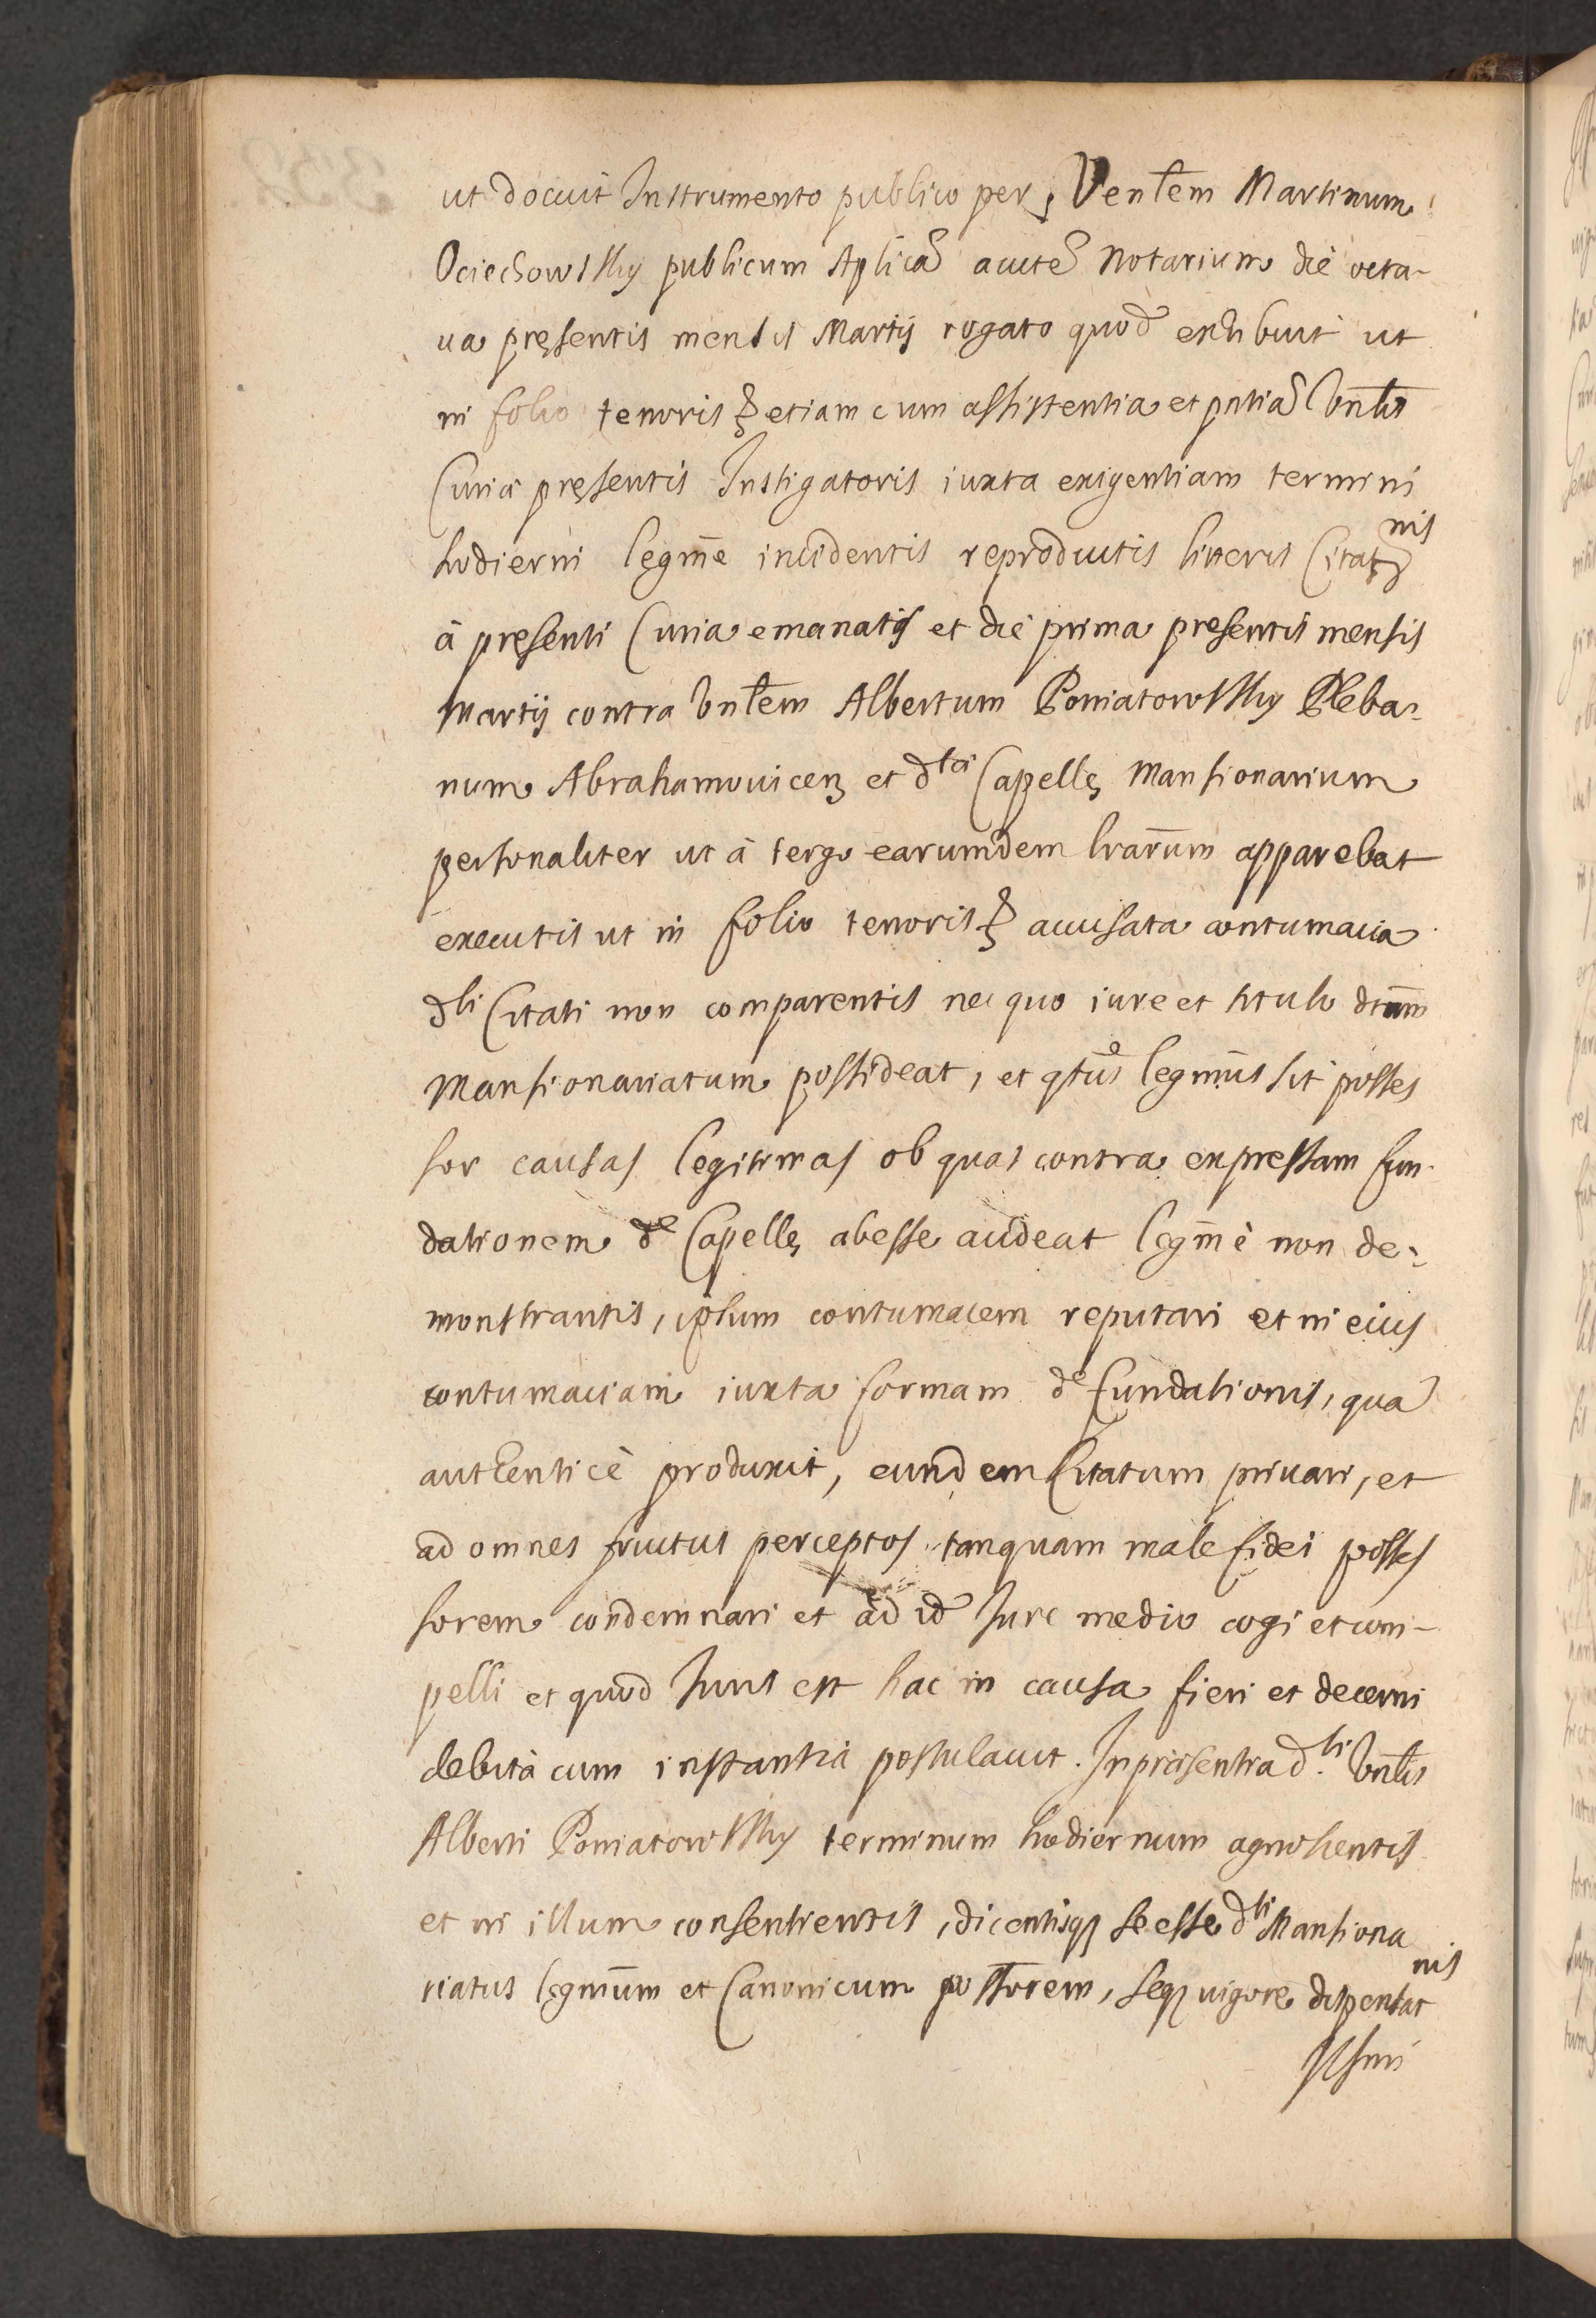 ut docuit Instrumento publico per Venlem Martinum
Ociechowsky publicum Aplica aucte Notarium die octa-
ua pręsentis mensis Martij rogato quod exhibuit ut
in folio tenoris etiam cum assistentia et pntia Vnlis
Curiæ pręsentis Instigatoris iuxta exigentiam termini
hodierni legme incidentis reproductis litteris Citatnis
à pręsenti Curia emanatis et die prima presentis mensis
Martij contra Vnlem Albertum Poniatowsky Pleba-
num Abrahamouicen et dtæ Capellę Mansionarium
personaliter ut à tergo earumdem lrarum apparebat
executis ut in folio tenoris accusata contumacia
dti Citati non comparentis nec quo iure et titulo dtum
Mansionariatum possideat, et qtus legmus sit posses
sor causas legitimas ob quas contra expressam fun-
dationem de Capellę abesse audeat legme non de-
monstrantis, ipsum contumacem reputari et in eius
contumaciam iuxta formam de fundationis, qua
authenticè produxit, eundem Citatum priuari, et
ad omnes fructus perceptos tanquam male fidei posses
sorem condemnari et ad id Jure medio cogi et com-
pelli et quod Juris est hac in causa fieri et decerni
debita cum instantia postulauit. In præsentia dti Vnlis
Alberti Poniatowsky terminum hodiernum agnoscentis
et in illum consentientis, dicentisq se esse dti Mansiona
riatus legmum et Canonicum possorem, seq uigore dispensatnis
Illsmi